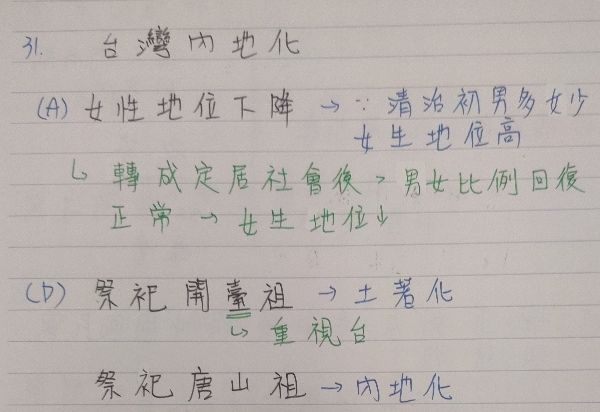 31. 台灣內地化
(A) 女性地位下降 → ∵ 清治初男多女少
女生地位高
↳ 轉成定居社會後,男女比例回復
正常 → 女生地位↓
(D) 祭祀開臺祖 → 土著化
↳ 重視台
祭祀唐山祖 → 內地化